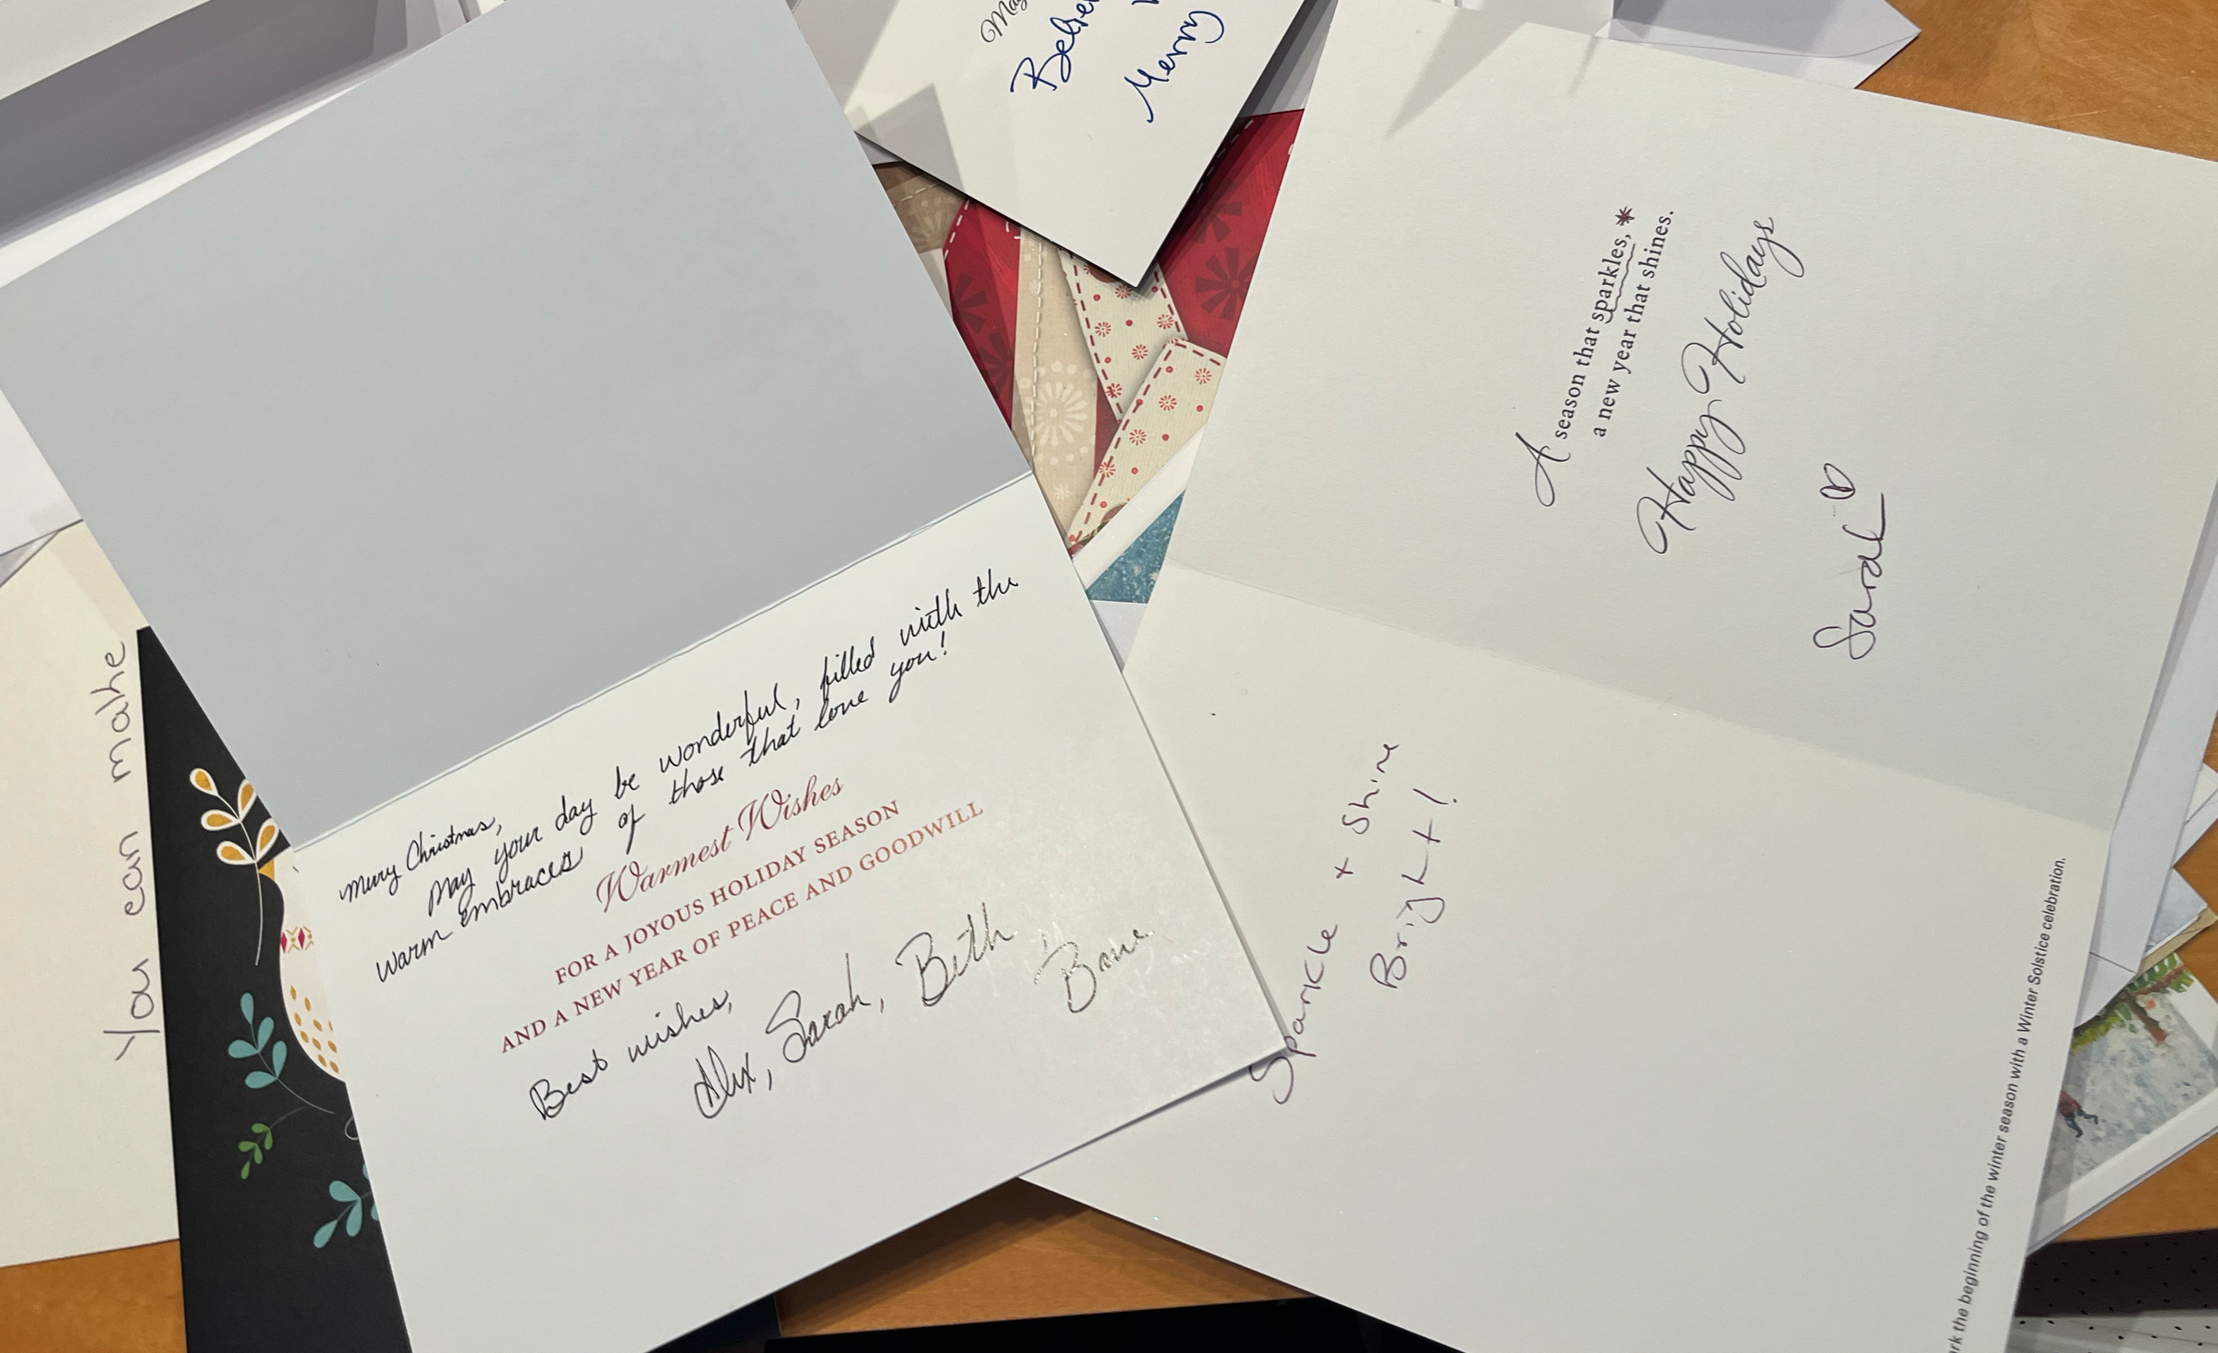 Merry Christmas,
May your day be wonderful, filled with the
warm embraces of those that love you!
Warmest Wishes
FOR A JOYOUS HOLIDAY SEASON
AND A NEW YEAR OF PEACE AND GOODWILL
Best wishes,
Alex, Sarah, Beth
A season that sparkles,
a new year that shines.
Happy Holidays
Sarah
Sparkle + Shine
Bright!
the beginning of the winter season with a Winter Solstice celebration.
You can make
Merry